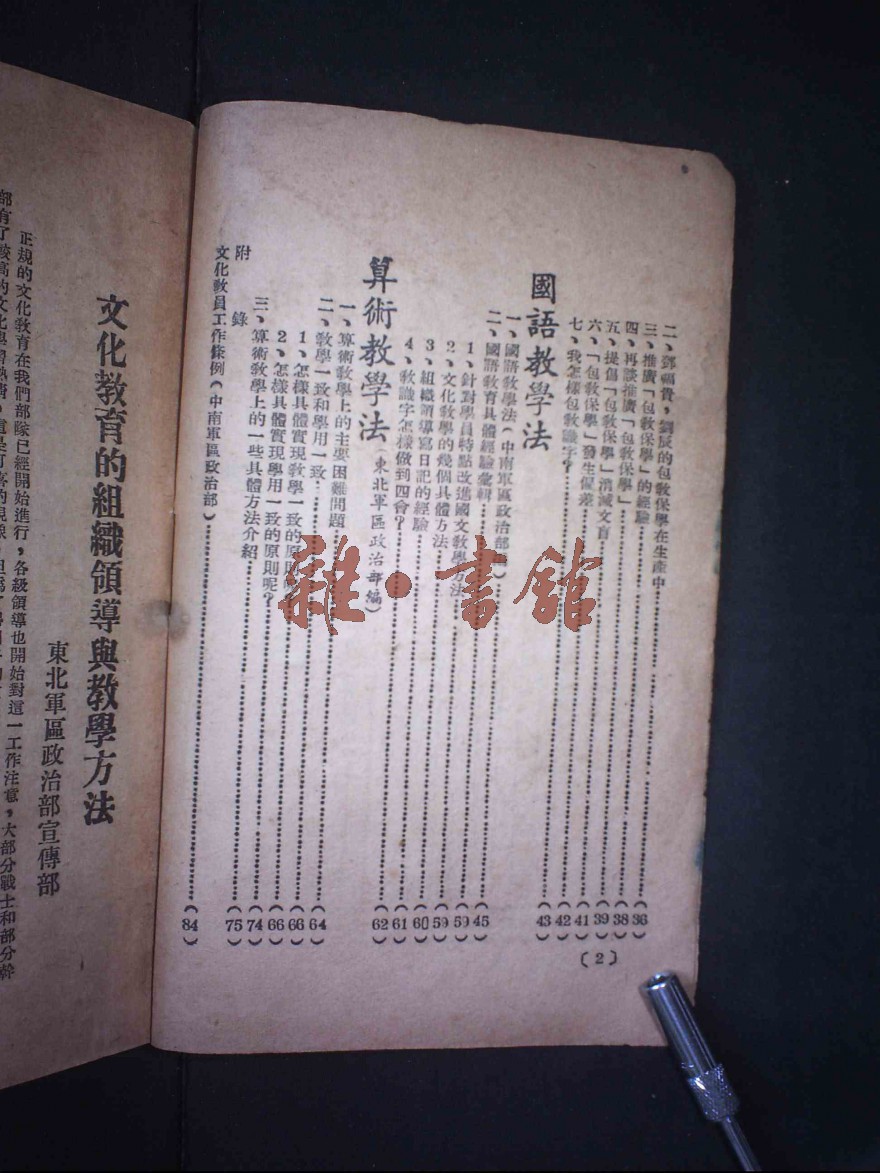 二、鄧福貴，劉辰的包教保學在生產中……(36)
三、推廣「包教保學」的經驗……(38)
四、再談推廣「包教保學」……(39)
五、提倡「包教保學」消滅文盲……(41)
六、「包教保學」發生偏差……(42)
七、我怎樣包教識字？……(43)
國語教學法
一、國語教學法（中南軍區政治部）……(45)
二、國語教育具體經驗彙輯……(59)
1、針對學員特點改進國文教學方法……(59)
2、文化教學的幾個具體方法……(60)
3、組織領導寫日記的經驗……(61)
4、教識字怎樣做到四會？……(62)
算術教學法（東北軍區政治部編）
一、算術教學上的主要困難問題……(64)
二、教學一致和學用一致……(66)
1、怎樣具體實現教學一致的原則……(66)
2、怎樣具體實現學用一致的原則呢？……(74)
三、算術教學上的一些具體方法介紹……(75)
附錄
文化教員工作條例（中南軍區政治部）……(84)
〔2〕
文化教育的組織領導與教學方法
東北軍區政治部宣傳部
正規的文化教育在我們部隊已經開始進行，各級領導也開始對這一工作注意，大部分戰士和部分幹
部有了較高的文化學習熱情，這是可喜的現象
雜·書館